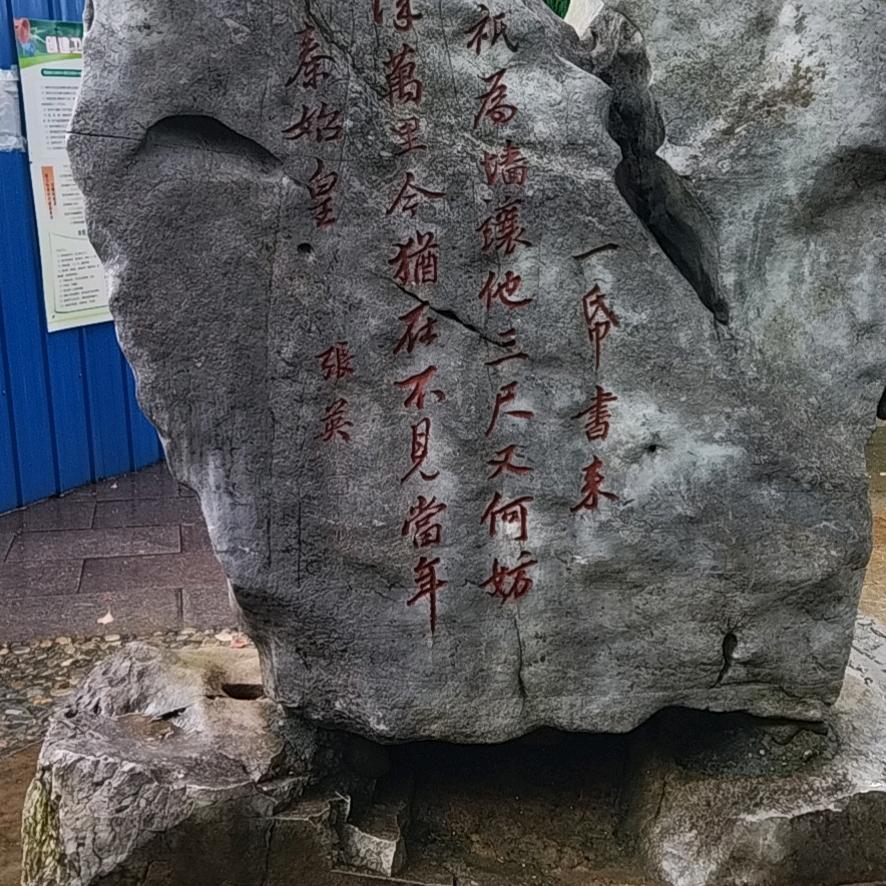 一帋書来
祇為墙讓他三尺又何妨
萬里今猶在不見當年
秦始皇
張英